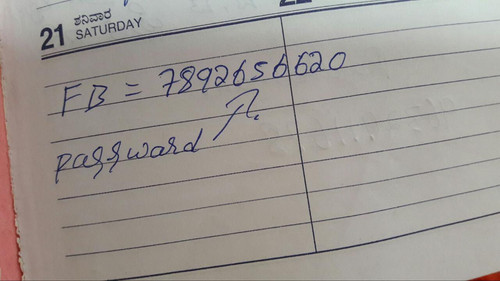 21 ಶನಿವಾರ
SATURDAY
FB = 7892656620
passward